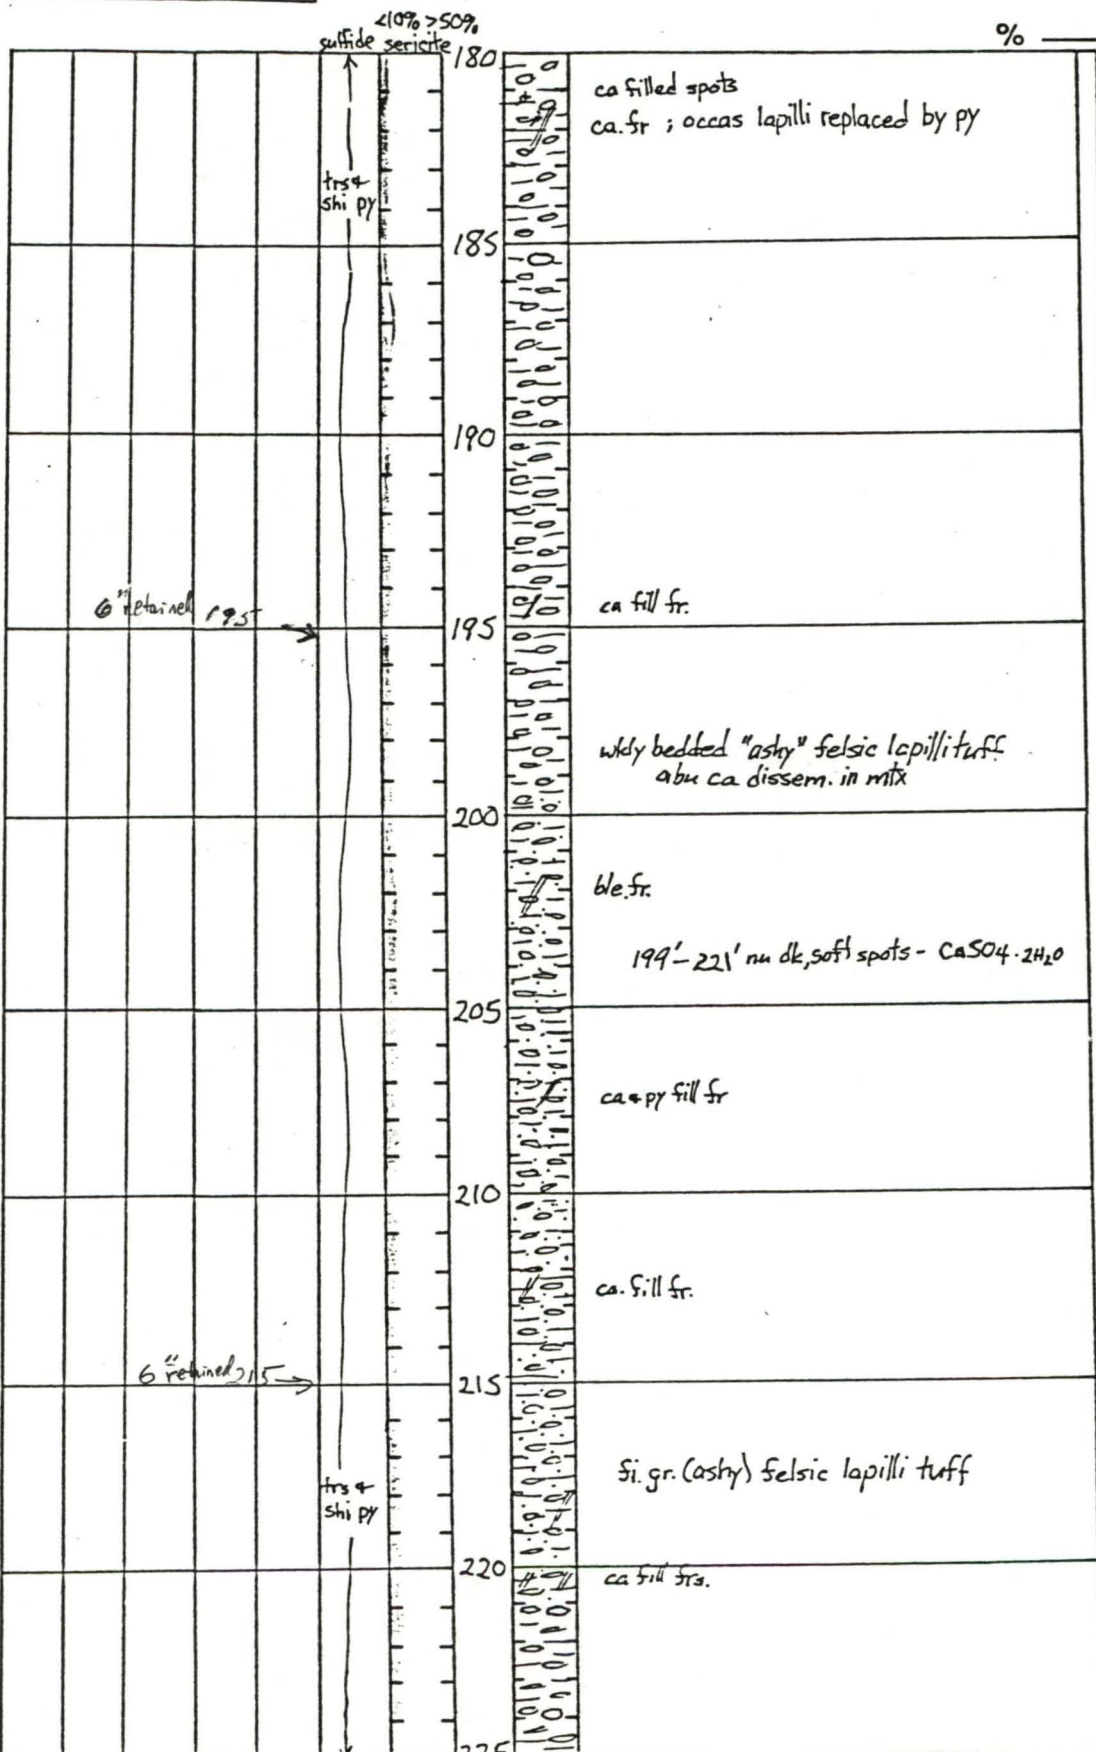 <10% >50%
sulfide sericite
%
180
ca filled spots
ca. fr ; occas lapilli replaced by py
trs &
shi py
185
190
ca fill fr.
6" retained 195
195
wkly bedded "ashy" felsic lapilli tuff
abu ca dissem. in mtx
200
ble. fr.
199'-221' nu dk, soft spots - CaSO4·2H2O
205
ca & py fill fr
210
ca. fill fr.
6" retained 215
215
fi. gr. (ashy) felsic lapilli tuff
trs &
shi py
220
ca fill frs.
225